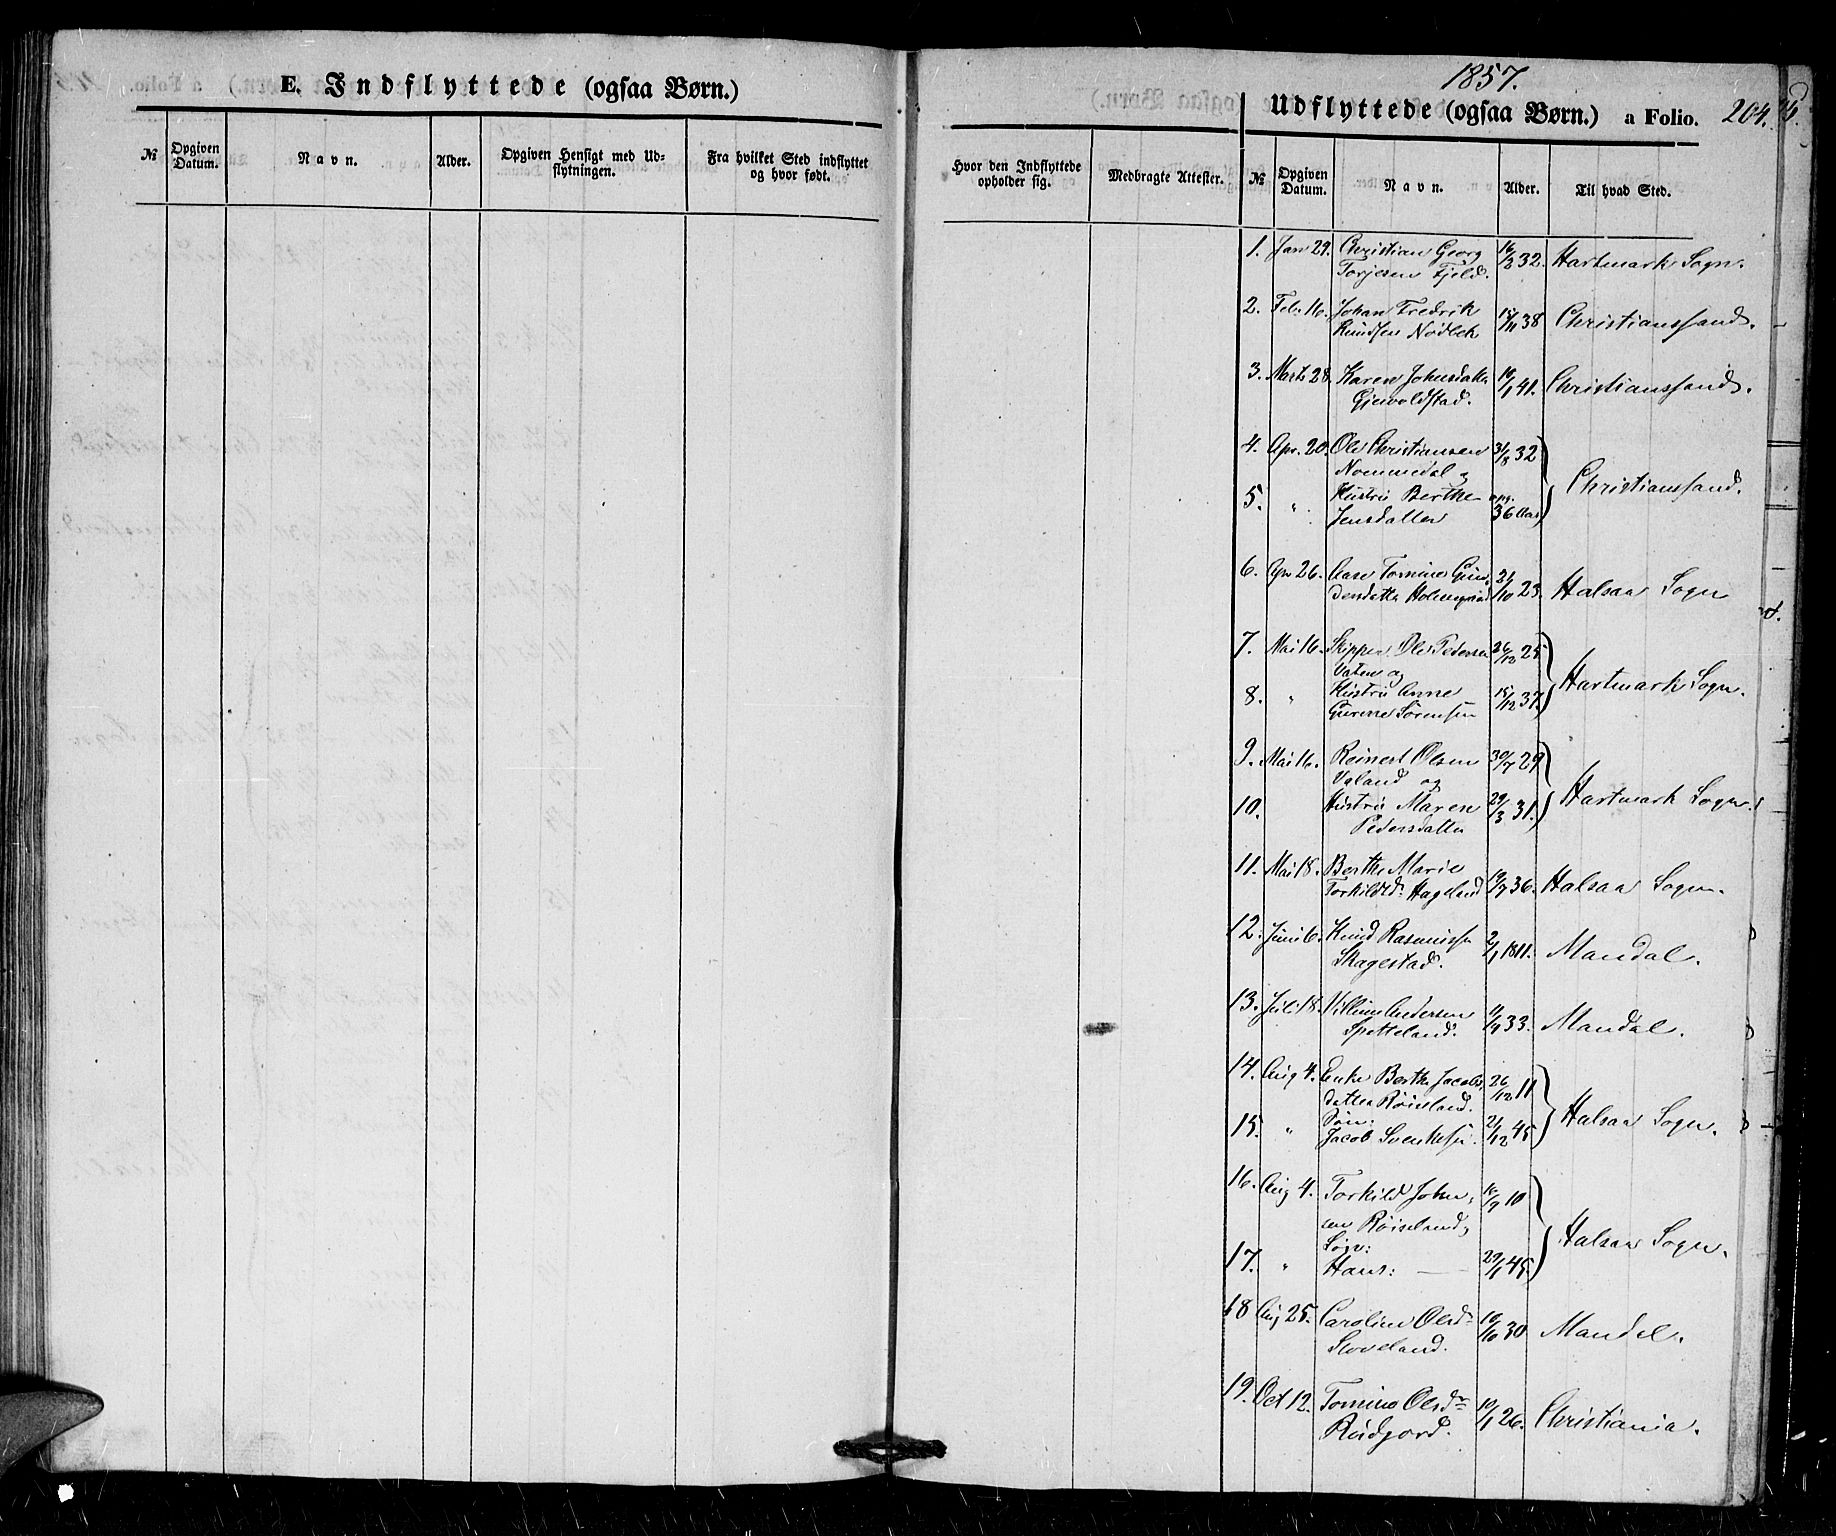 E. Indflyttede (ogsaa Børn.)
№ Opgiven Datum. Navn. Alder. Opgiven Hensigt med Udflytningen. Fra hvilket Sted indflyttet og hvor født.
1857.
Udflyttede (ogsaa Børn.) a Folio. 204.
Hvor den Indflyttede opholder sig. Medbragte Attester. № Opgiven Datum. Navn. Alder. Til hvad Sted.
1. Jan 29. Christian Georg 16/3 32. Hartmark Sogn.
Torjesen Fjeld.
2. Feb. 16. Johan Fredrik 15/11 38 Christianssand.
Knudsen Nødbek
3. Marts 28. Karen Johnsdatter 19/1 41. Christianssand.
Gjevoldstad.
4. Apr. 20. Ole Christiansen 31/8 32
Nommedal og
Christianssand.
5. " Hustru Berthe opg.
Jensdatter 36 Aar
6. Apr 26. Aase Tomine Gun- 21/10 23. Halsaa Sogn
dersdatter
7. Mai 16. Skipper Ole Pedersen 26/12 25
Vatne og
Hartmark Sogn.
8. " Hustru Anne 15/12 37.
Gurine Sørensen
9. Mai 16. Reinert Olsen 30/7 29
Valand og
Hartmark Sogn.
10. Hustru Maren 29/3 31.
Pedersdatter
11. Mai 18. Berthe Marie 19/7 36. Halsaa Sogn.
Torkildsd: Hageland
12. Juni 6. Knud Rasmussen 2/1 1811. Mandal.
Skagestad.
13. Juli 18. Villum Andersen 33. Mandal.
Spetteland.
14. Aug 4. Enke Berthe Jacobs- 26/12 11
datter Røiseland.
Halsaa Sogn.
15. " Søn: 21/12 45
Jacob Svenksen.
16. Aug 4. Torkild John- 16/9 10
sen Røiseland,
Halsaa Sogn.
Søn:
17. " Hans: — 29/1 45.
18 Aug 25. Caroline Olsd: 19/10 30 Mandal.
Stoveland.
19. Oct 12. Tomine Olsd: 19/1 26. Christiania.
Rødgjord.